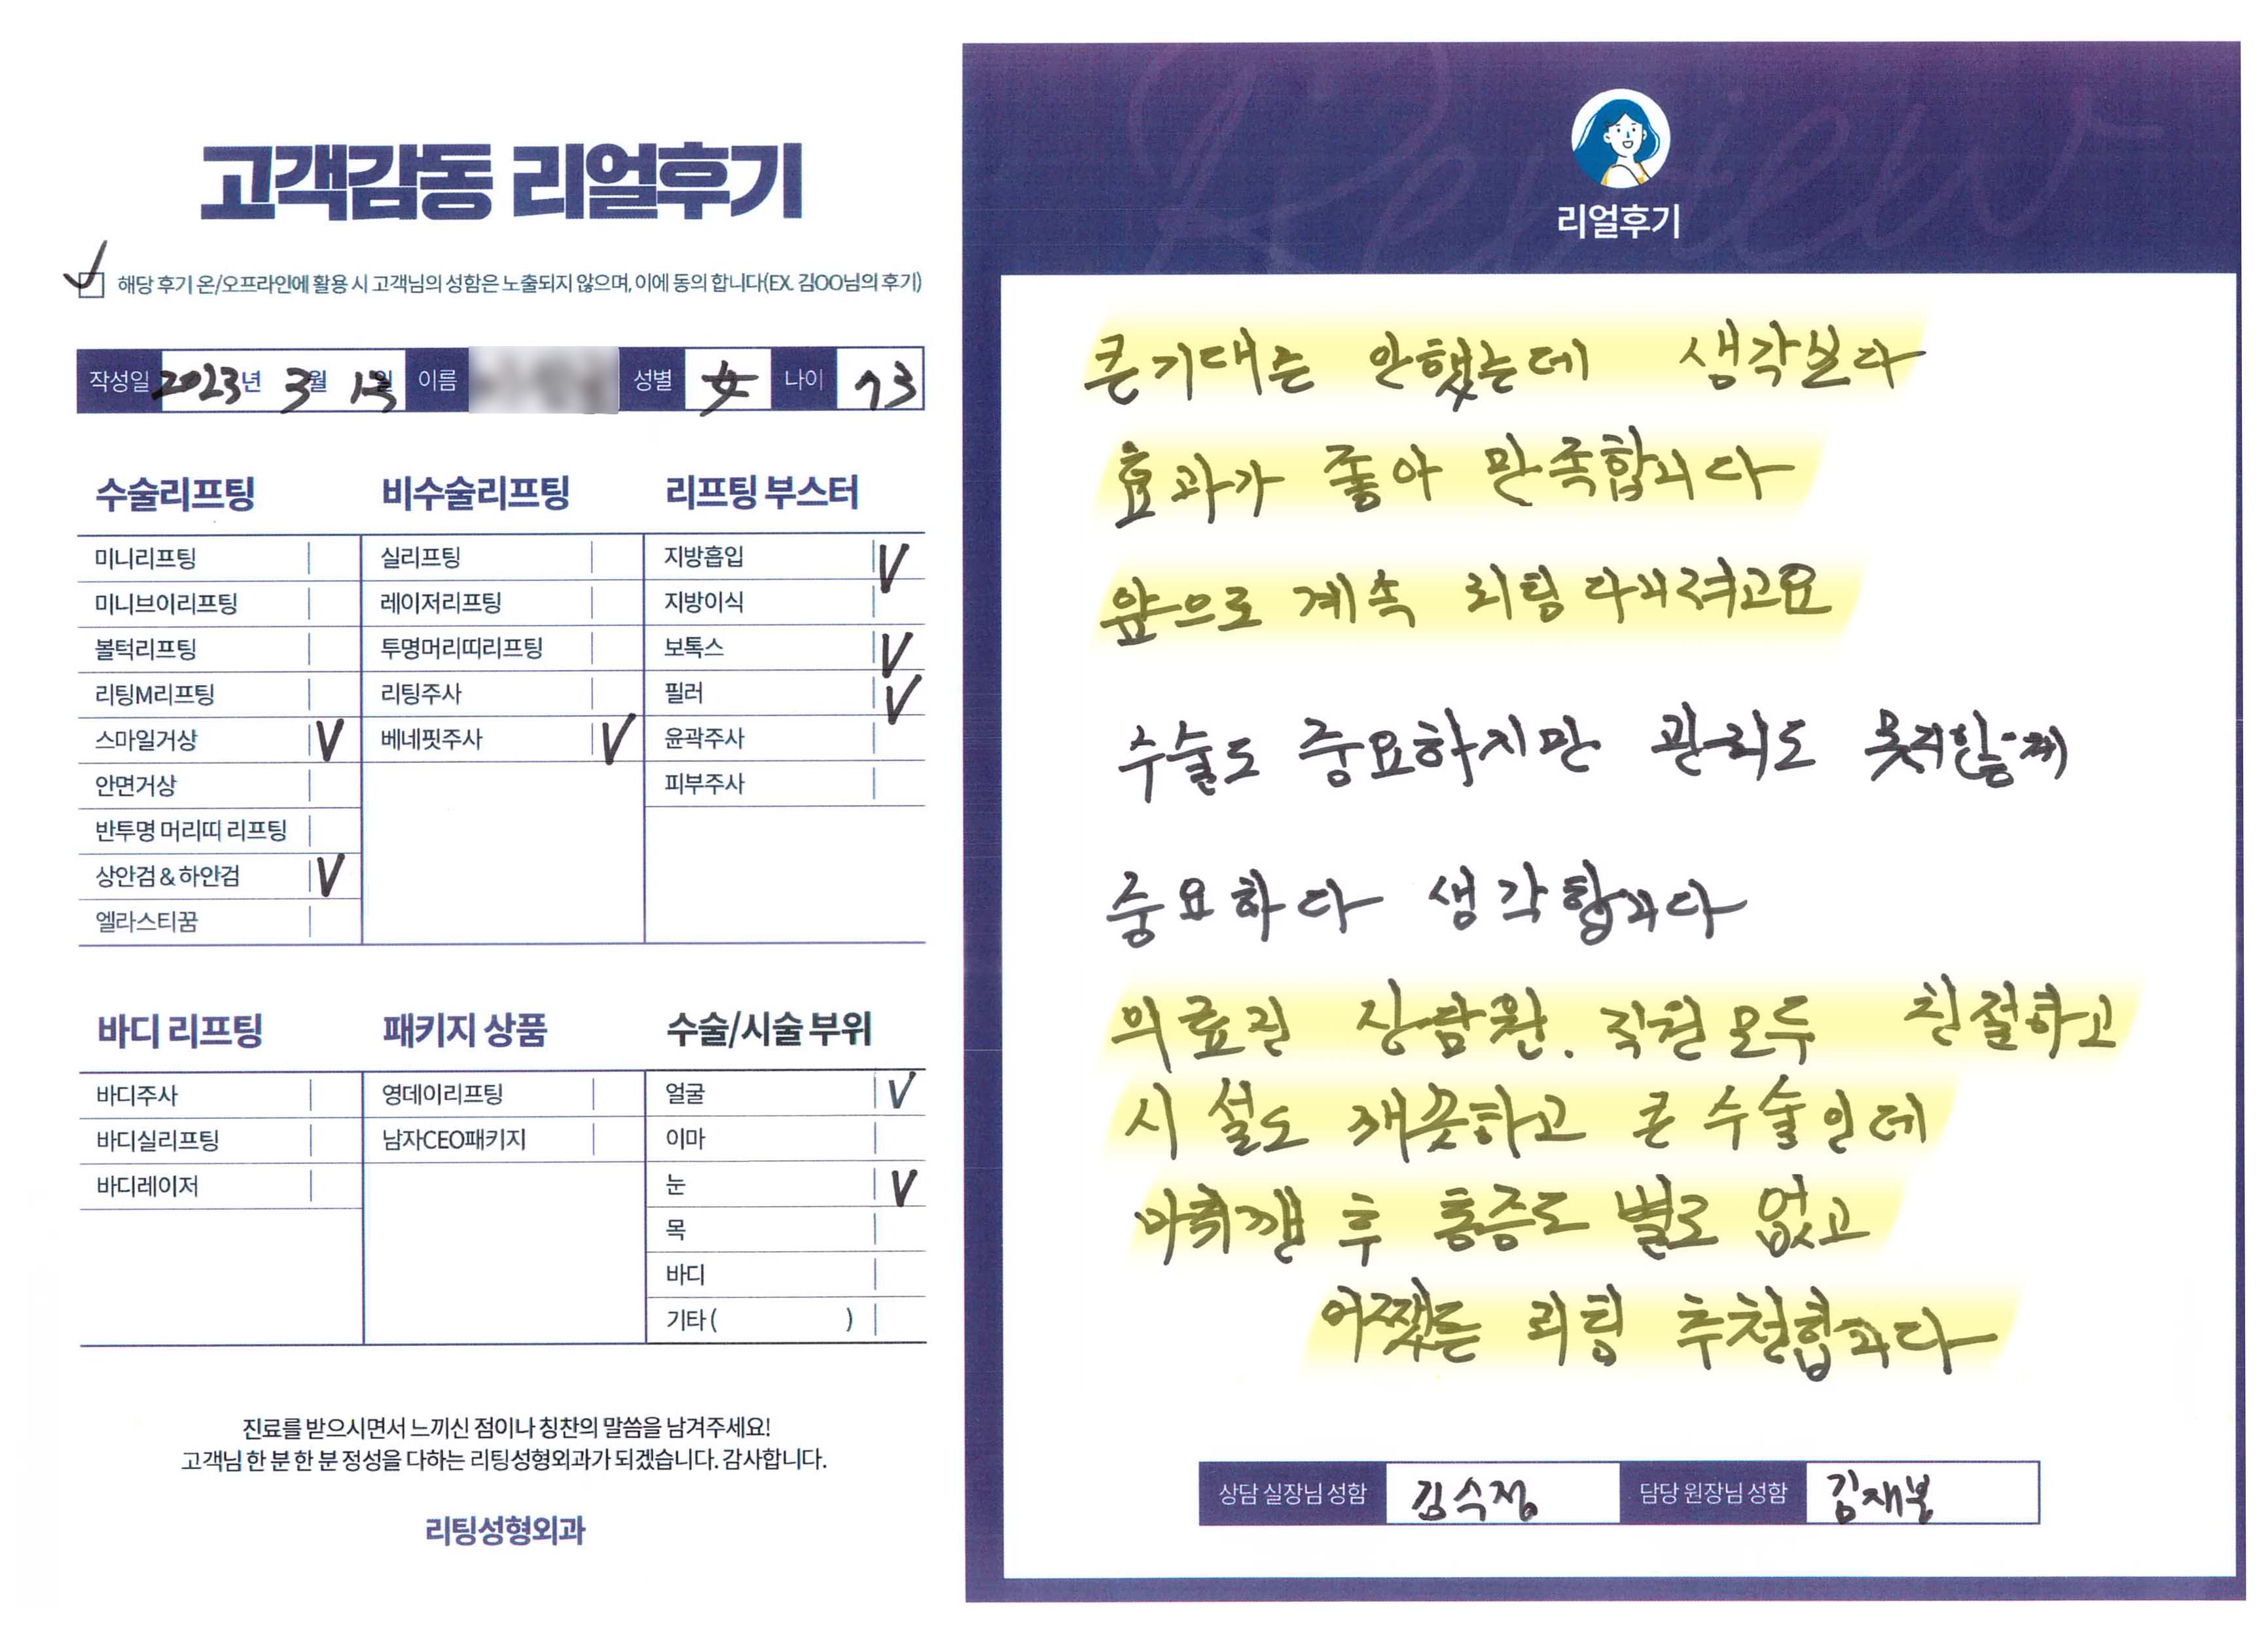 고객감동 리얼후기
해당 후기 온/오프라인에 활용 시 고객님의 성함은 노출되지 않으며, 이에 동의 합니다(EX. 김OO님의 후기)
작성일 2023년 3월 13일 이름 성별 女 나이 73
수술리프팅
미니리프팅
미니브이리프팅
볼턱리프팅
리팅M리프팅
스마일거상 V
안면거상
반투명 머리띠 리프팅
상안검 & 하안검 V
엘라스티꿈
비수술리프팅
실리프팅
레이저리프팅
투명머리띠리프팅
리팅주사
베네핏주사 V
리프팅 부스터
지방흡입 V
지방이식
보톡스 V
필러 V
윤곽주사
피부주사
바디 리프팅
바디주사
바디실리프팅
바디레이저
패키지 상품
영데이리프팅
남자CEO패키지
수술/시술 부위
얼굴 V
이마
눈 V
목
바디
기타 ( )
진료를 받으시면서 느끼신 점이나 칭찬의 말씀을 남겨주세요!
고객님 한 분 한 분 정성을 다하는 리팅성형외과가 되겠습니다. 감사합니다.
리팅성형외과
Review
리얼후기
큰기대는 안했는데 생각보다
효과가 좋아 만족합니다
앞으로 계속 리팅 다니려고요
수술도 중요하지만 관리도 못지않게
중요하다 생각합니다
의료진 상담원. 직원 모두 친절하고
시설도 깨끗하고 큰 수술인데
마취깬 후 통증도 별로 없고
어쨌든 리팅 추천합니다
상담 실장님 성함 김수정 담당 원장님 성함